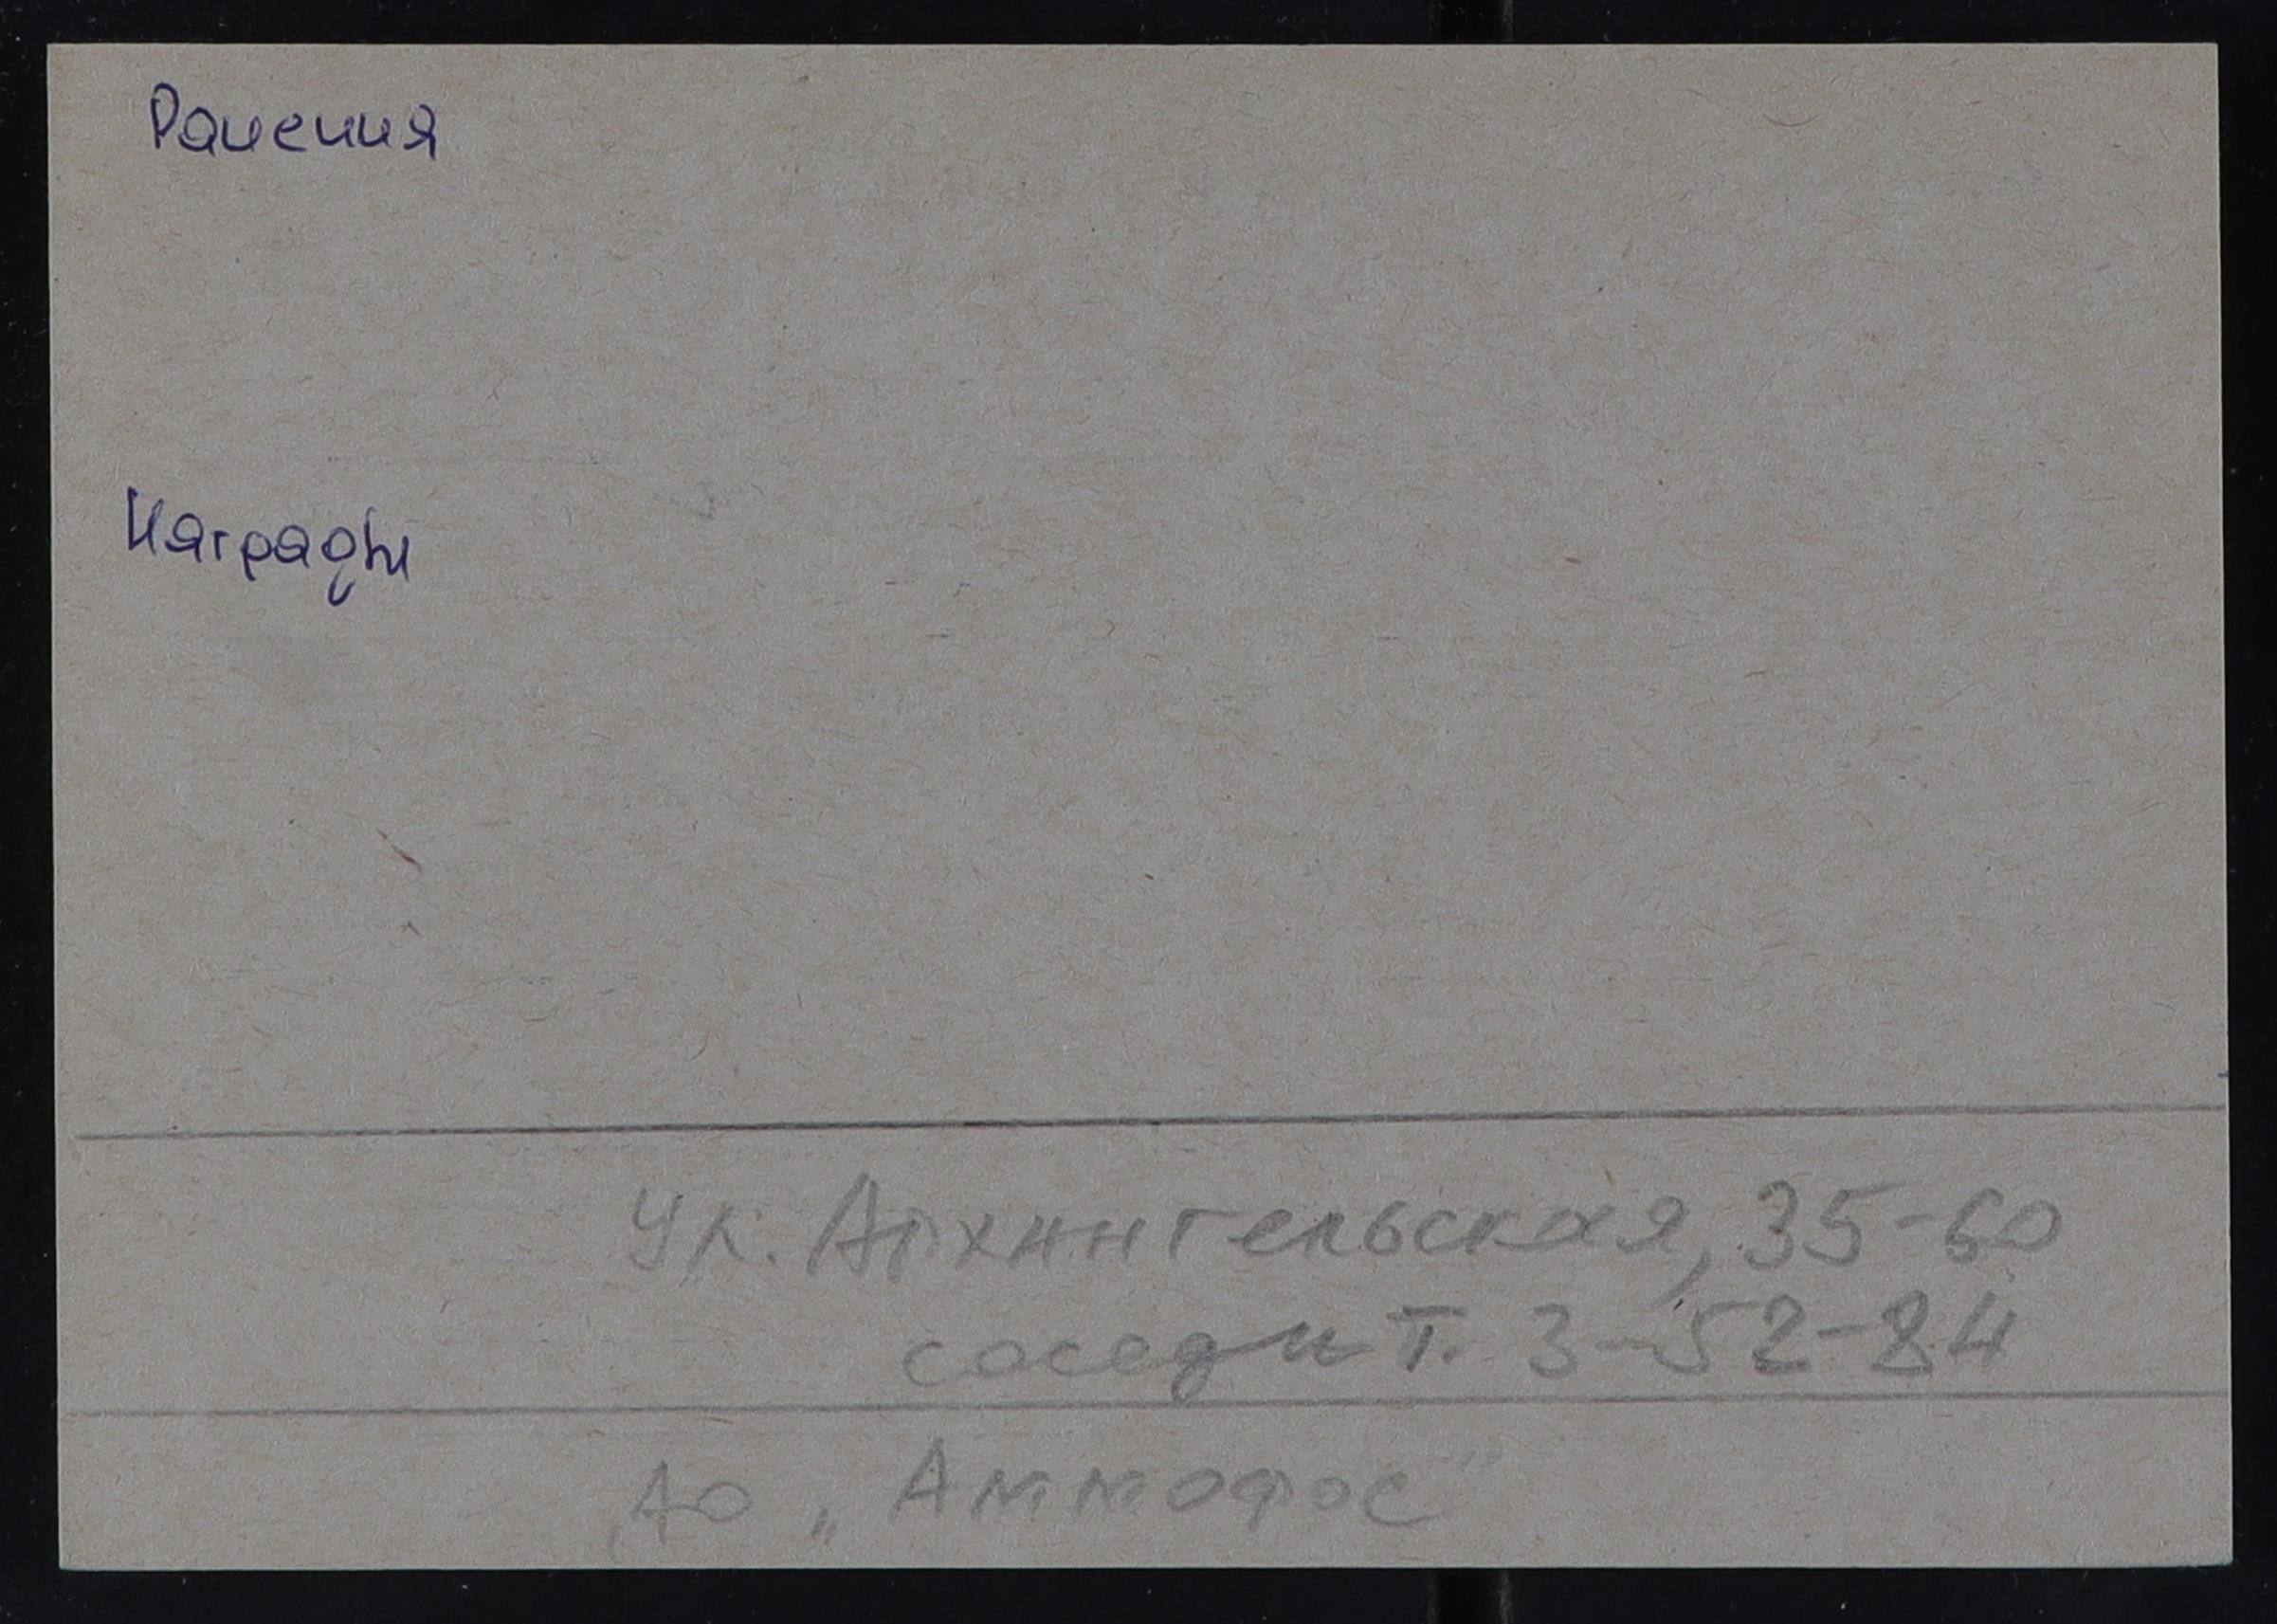 Ранения
Награды
Ул. Архангельская, 35-60
соседи т. 3-52-84
АО „Аммофос"